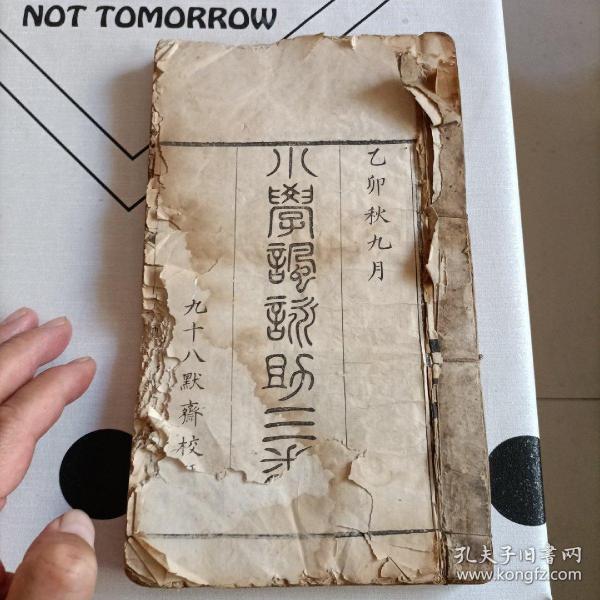 NOT TOMORROW
乙卯秋九月
小學諷詠助三
九十八默齋校
孔夫子旧書网
www.kongfz.com